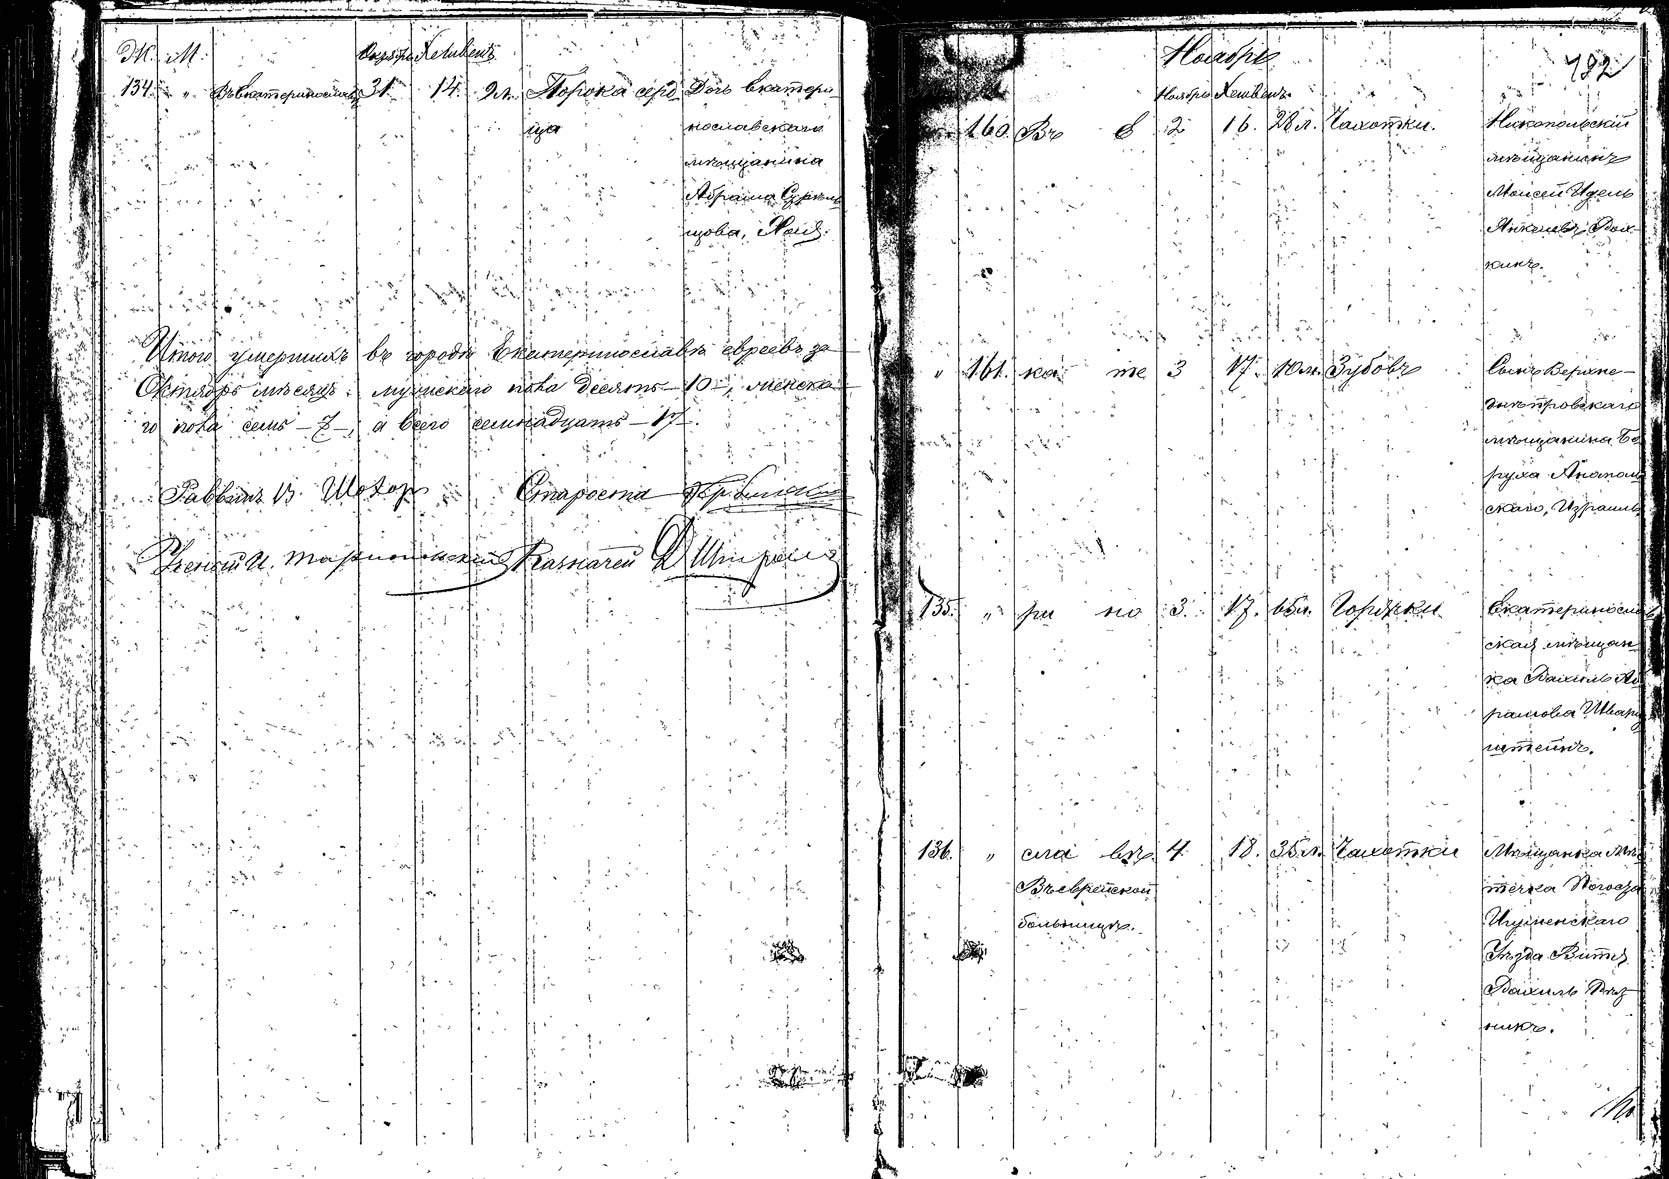 Ж. М. Октябрь Хешвенъ
134 " Въ Екатеринославѣ 31 14 2 л. Порока серд- Дочь Екатери-
ца нославскаго
мѣщанина
Абрама
щова, Хая.
Итого умершихъ въ городѣ Екатеринославѣ евреевъ за
Октябрь мѣсяцъ: мужскаго пола десять – 10 –, женска-
го пола семь – 7 –, а всего семнадцать – 17 –.
Раввинъ В. Шохоръ Староста
Ученый И. Казначей Д Штром
Ноябрь 782
Ноябрь Хешвенъ
160. Въ Е 2 16. 28 л. Чахотки. Никопольскій
мѣщанинъ
Мойсей Идель
Янкелевъ Вол-
кинъ.
" 161. ка те 3 17. 10 м. Зубовъ Сынъ Верхне-
днѣпровскаго
мѣщанина Бо-
руха Анаполь-
скаго, Израиль
135. " ри но 3. 17. 65 л. Горячки Екатеринослав-
ская мѣщан-
ка Рахиль Аб-
рамова Шварц-
штейнъ.
136. " сла вѣ. 4 18. 35 л. Чахотки Мѣщанка мѣс-
Въ еврейской течка Погоста
больницѣ. Игуменскаго
Уѣзда Витя
Рахиль Рѣз-
никъ.